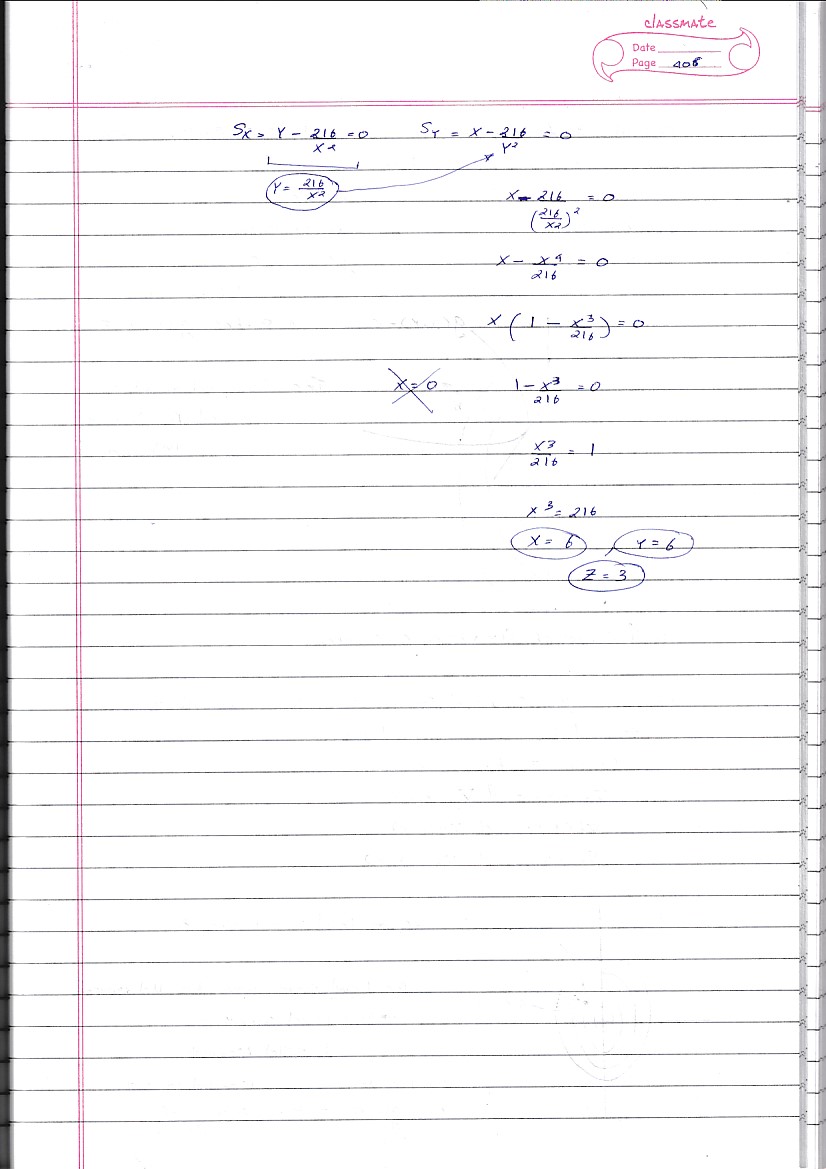 classmate
Date
Page 408
Sx = Y - 216/X² = 0    SY = X - 216/Y² = 0
Y = 216/X²
X - 216/(216/X²)² = 0
X - X⁴/216 = 0
X (1 - X³/216) = 0
X = 0    1 - X³/216 = 0
X³/216 = 1
X³ = 216
X = 6, Y = 6
Z = 3